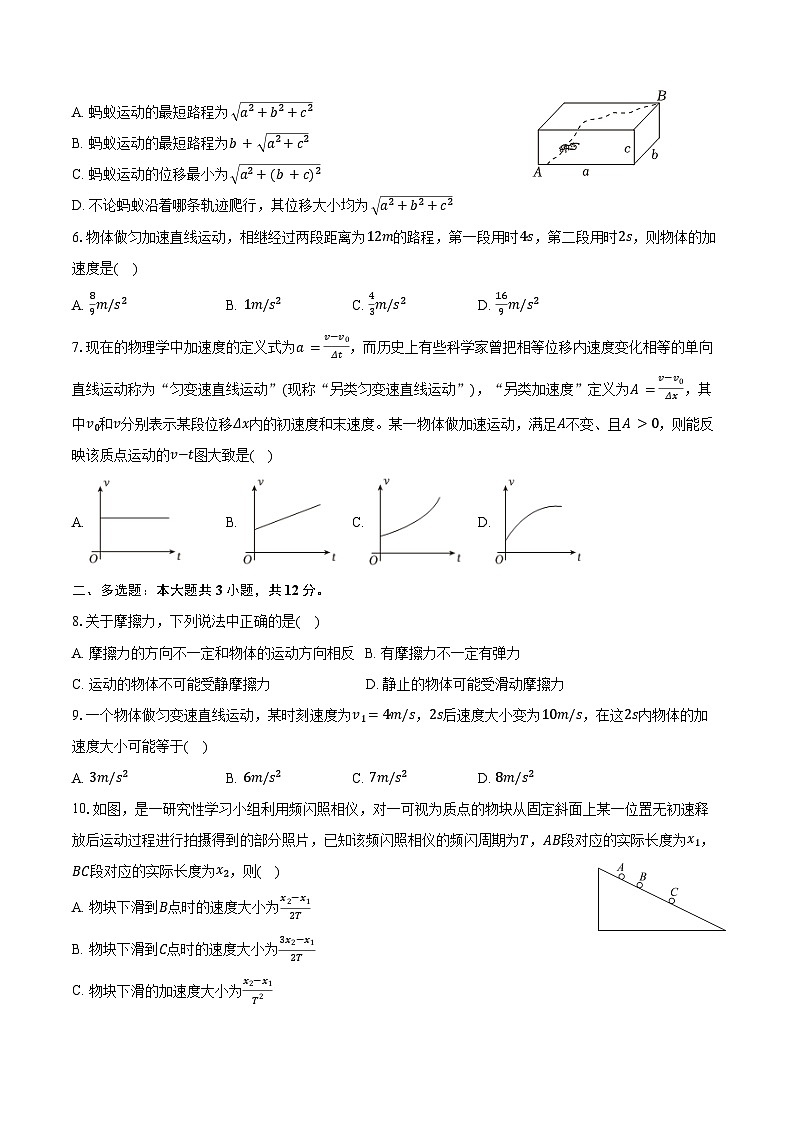 A. 蚂蚁运动的最短路程为 √(a²+b²+c²)
B. 蚂蚁运动的最短路程为b + √(a²+c²)
C. 蚂蚁运动的位移最小为 √(a²+(b+c)²)
D. 不论蚂蚁沿着哪条轨迹爬行，其位移大小均为 √(a²+b²+c²)
B
c
b
A
a
6. 物体做匀加速直线运动，相继经过两段距离为12m的路程，第一段用时4s，第二段用时2s，则物体的加
速度是( )
A. 8/9 m/s² B. 1m/s² C. 4/3 m/s² D. 16/9 m/s²
7. 现在的物理学中加速度的定义式为a = (v−v₀)/Δt，而历史上有些科学家曾把相等位移内速度变化相等的单向
直线运动称为“匀变速直线运动”(现称“另类匀变速直线运动”)，“另类加速度”定义为A = (v−v₀)/Δx，其
中v₀和v分别表示某段位移Δx内的初速度和末速度。某一物体做加速运动，满足A不变、且A > 0，则能反
映该质点运动的v−t图大致是( )
A. v O t B. v O t C. v O t D. v O t
二、多选题：本大题共 3 小题，共 12 分。
8. 关于摩擦力，下列说法中正确的是( )
A. 摩擦力的方向不一定和物体的运动方向相反 B. 有摩擦力不一定有弹力
C. 运动的物体不可能受静摩擦力 D. 静止的物体可能受滑动摩擦力
9. 一个物体做匀变速直线运动，某时刻速度为v₁ = 4m/s，2s后速度大小变为10m/s，在这2s内物体的加
速度大小可能等于( )
A. 3m/s² B. 6m/s² C. 7m/s² D. 8m/s²
10. 如图，是一研究性学习小组利用频闪照相仪，对一可视为质点的物块从固定斜面上某一位置无初速释
放后运动过程进行拍摄得到的部分照片，已知该频闪照相仪的频闪周期为T，AB段对应的实际长度为x₁，
BC段对应的实际长度为x₂，则( )
A
B
C
A. 物块下滑到B点时的速度大小为(x₂−x₁)/2T
B. 物块下滑到C点时的速度大小为(3x₂−x₁)/2T
C. 物块下滑的加速度大小为(x₂−x₁)/T²